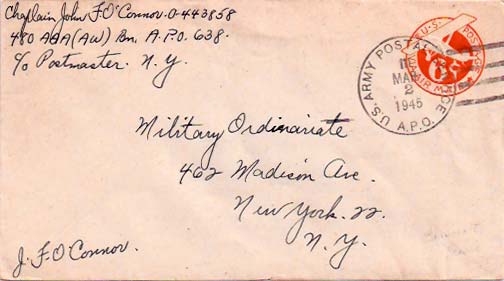 Chaplain John F. O'Connor. O-443858
480 AAA (AW) Bn. A.P.O. 638.
c/o Postmaster. N.Y.
U.S. POSTAGE
AIR MAIL
U.S. ARMY POSTAL SERVICE
MAR
2
1945
A.P.O.
Military Ordinariate
462 Madison Ave.
New York. 22.
N.Y.
J. F. O'Connor.